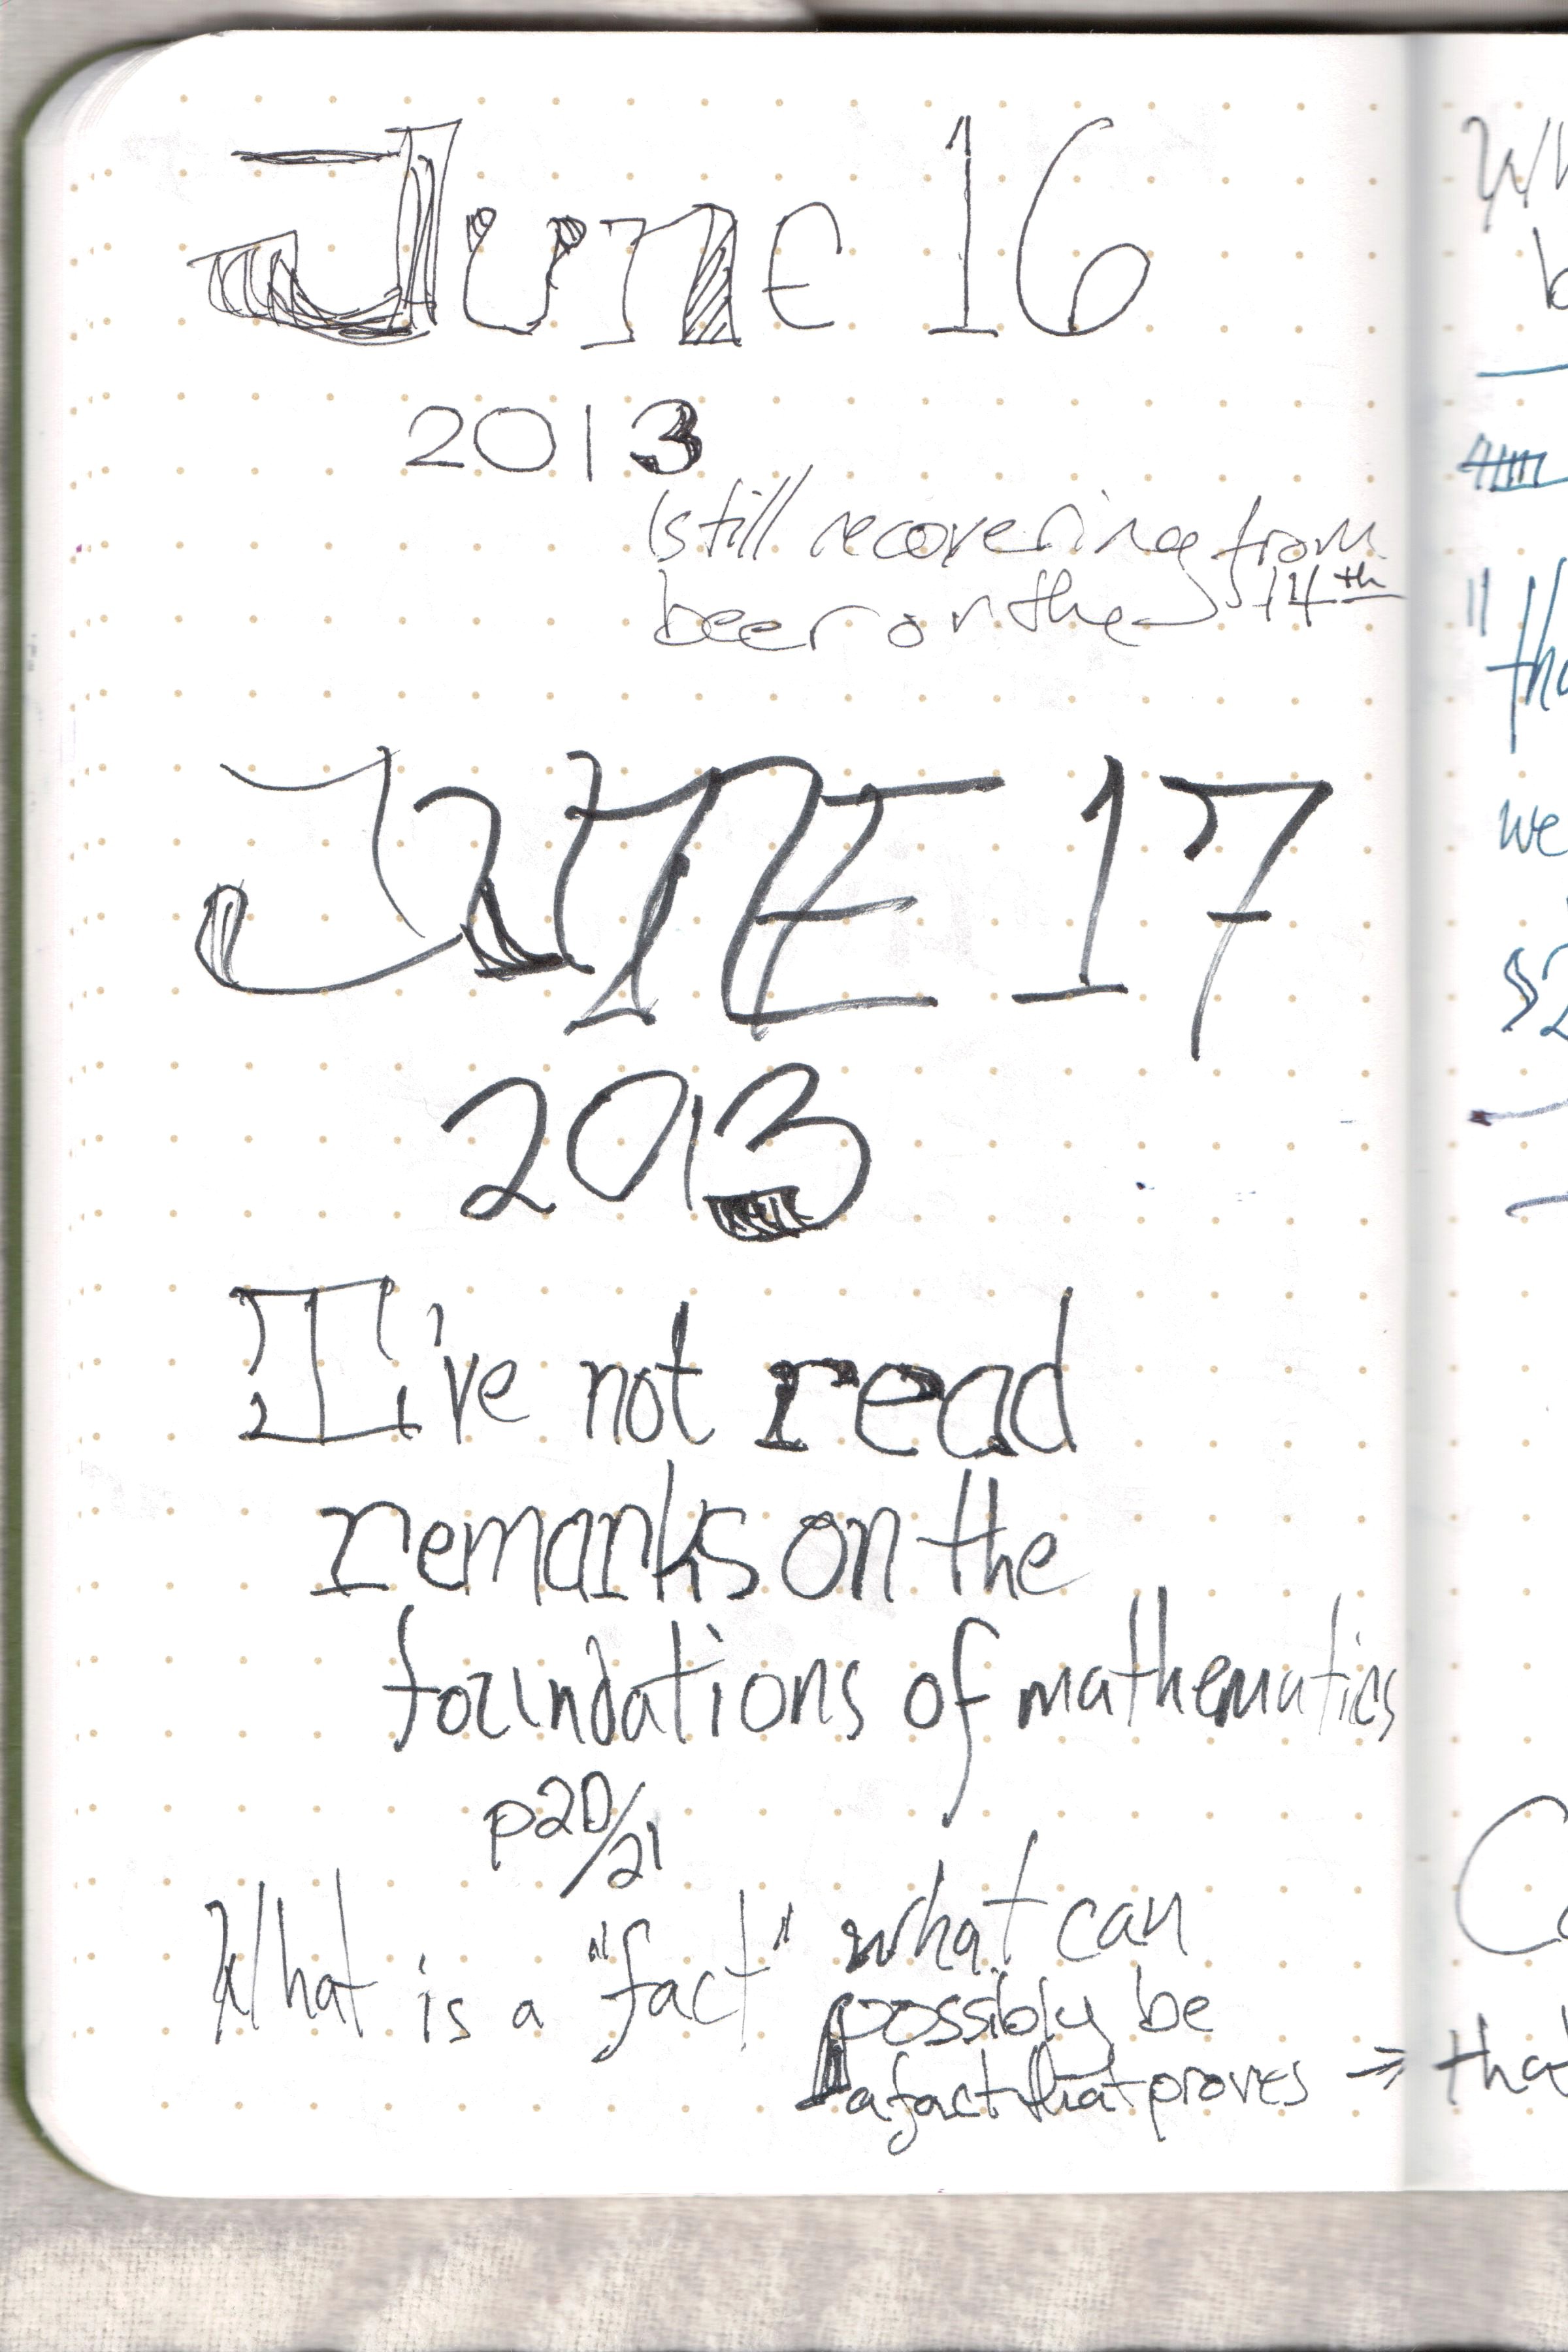 June 16
2013
(still recovering from
beer on the 14th
JUNE 17
2013
I've not read
remarks on the
foundations of mathematics
p20/21
What is a "fact" what can
possibly be
a fact that proves →
we
§2